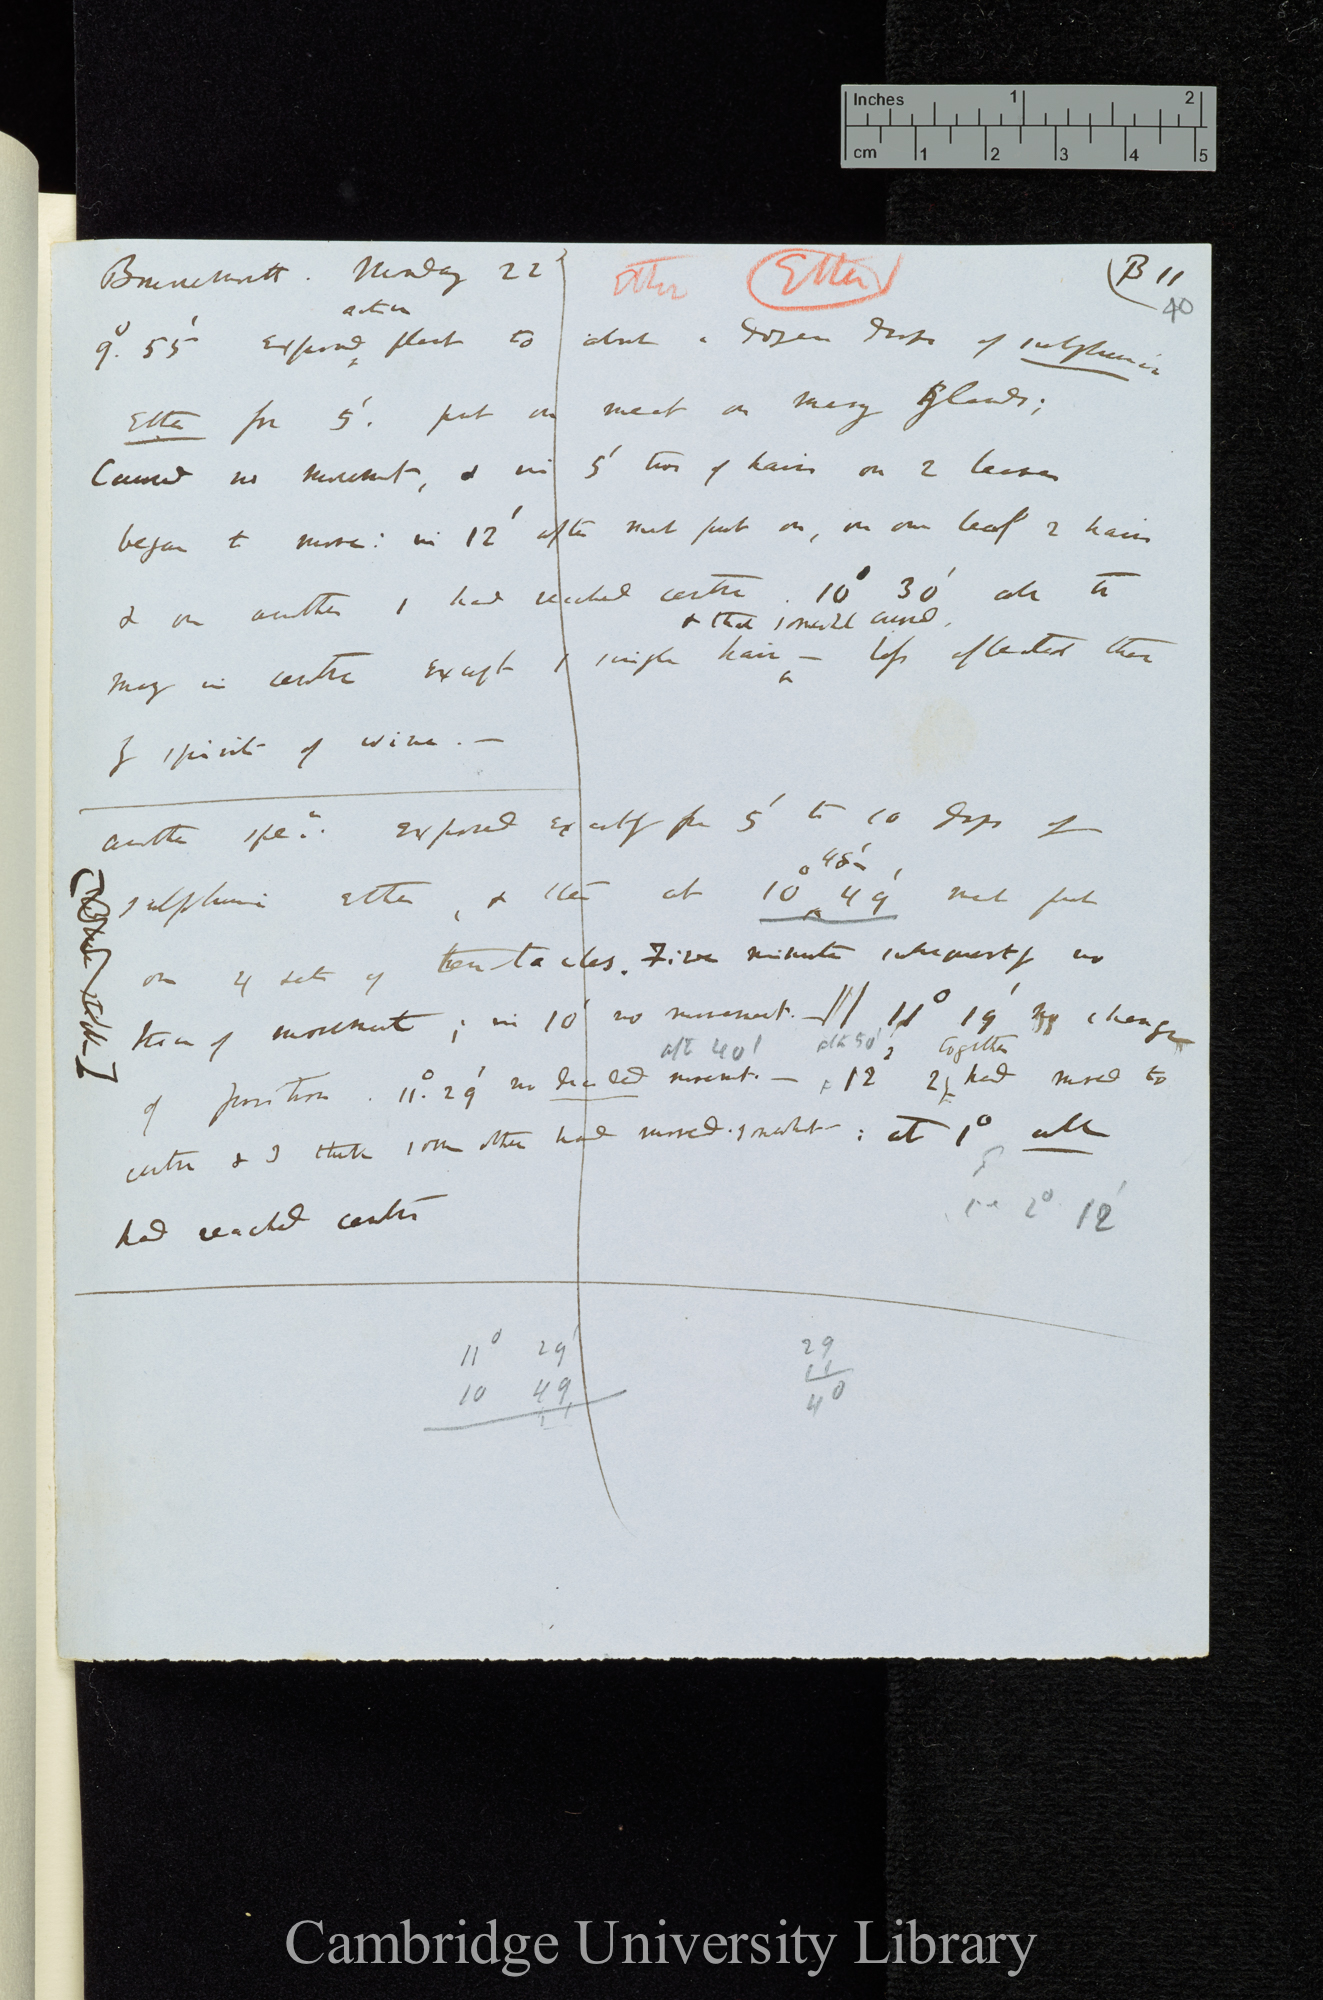 Inches 1 2
cm 1 2 3 4 5
Bournemouth. Monday 22
Ether Ether B 11
40
active
9°. 55' exposed plant to about a dozen drops of sulphuric
Ether for 5'. put on meat on many Glands;
Caused no movement, & in 5' two of hairs on 2 leaves
began to move: in 12' after meat put on, on one leaf 2 hairs
& on another 1 had reached centre. 10° 30' all the
& that somewhat curved.
many in centre except 1 single hair — less affected than
by spirits of wine. —
another spec. exposed exactly for 5' to 10 drops of
45'
sulphuric ether, & then at 10° 49' meat put
on 4 sets of tentacles. Five minutes subsequently no
trace of movement; in 10' no movement. — 11° 19' no change
after 40' after 50' together
of position. 11° 29' no decided movement. — 12° 2 had moved to
centre & I think some other had moved somewhat: at 1° all
ie 2° 12'
had reached centre
11° 29' 29
10 49 11
40
Cambridge University Library